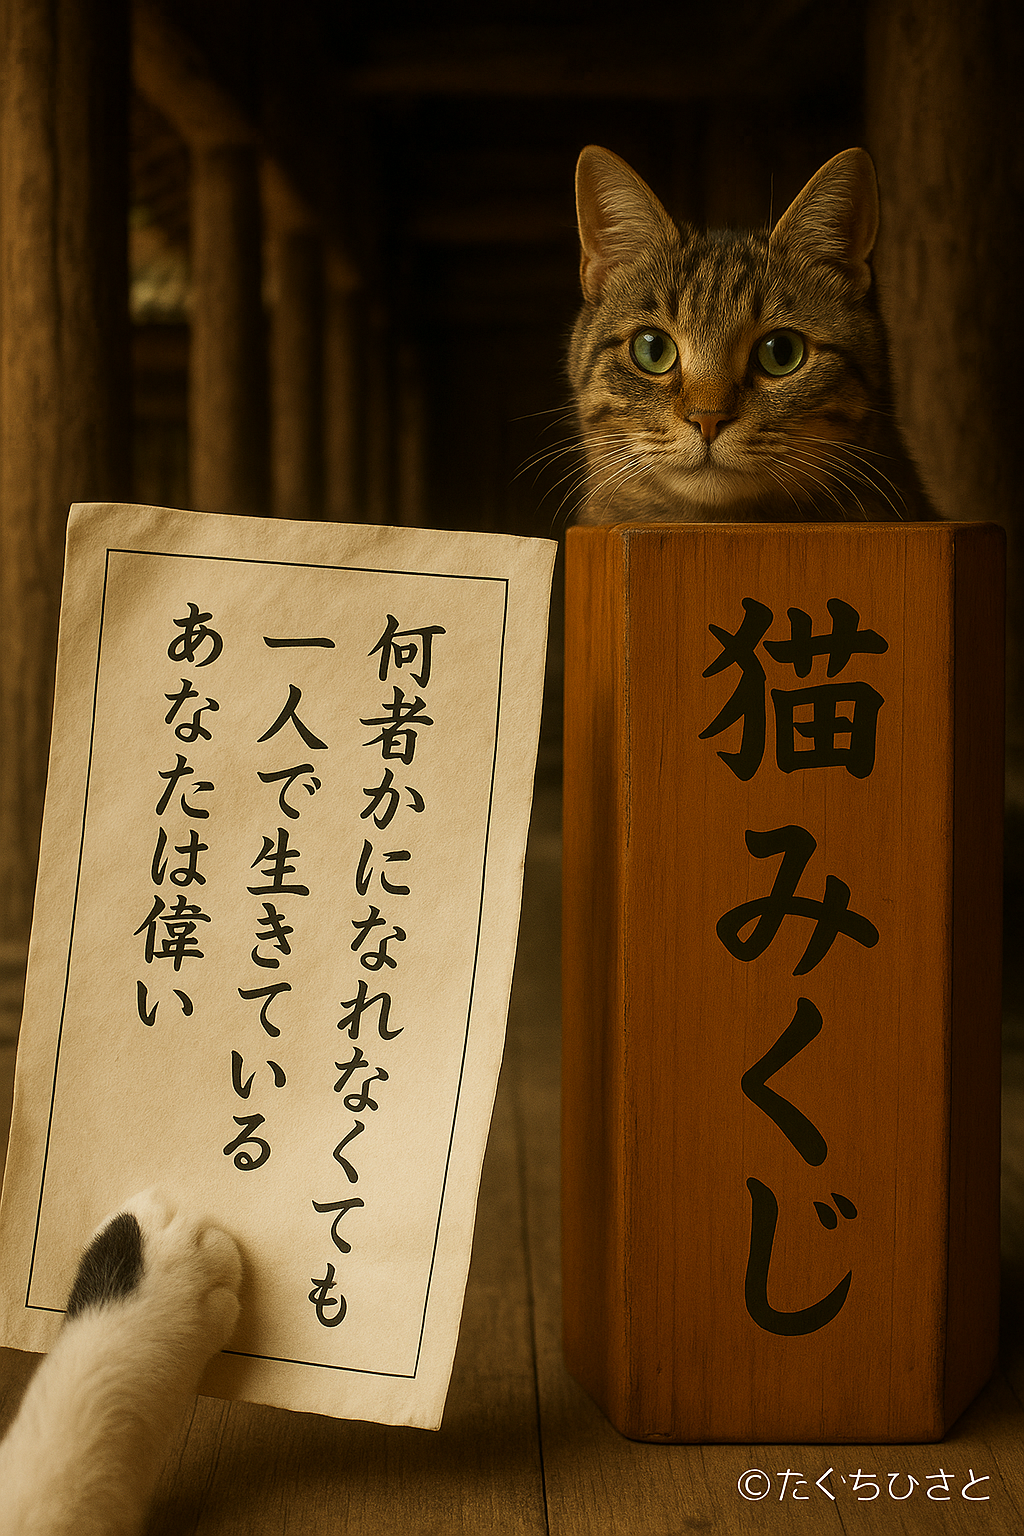 何者かになれなくても
一人で生きている
あなたは偉い
猫みくじ
©たぐちひさと